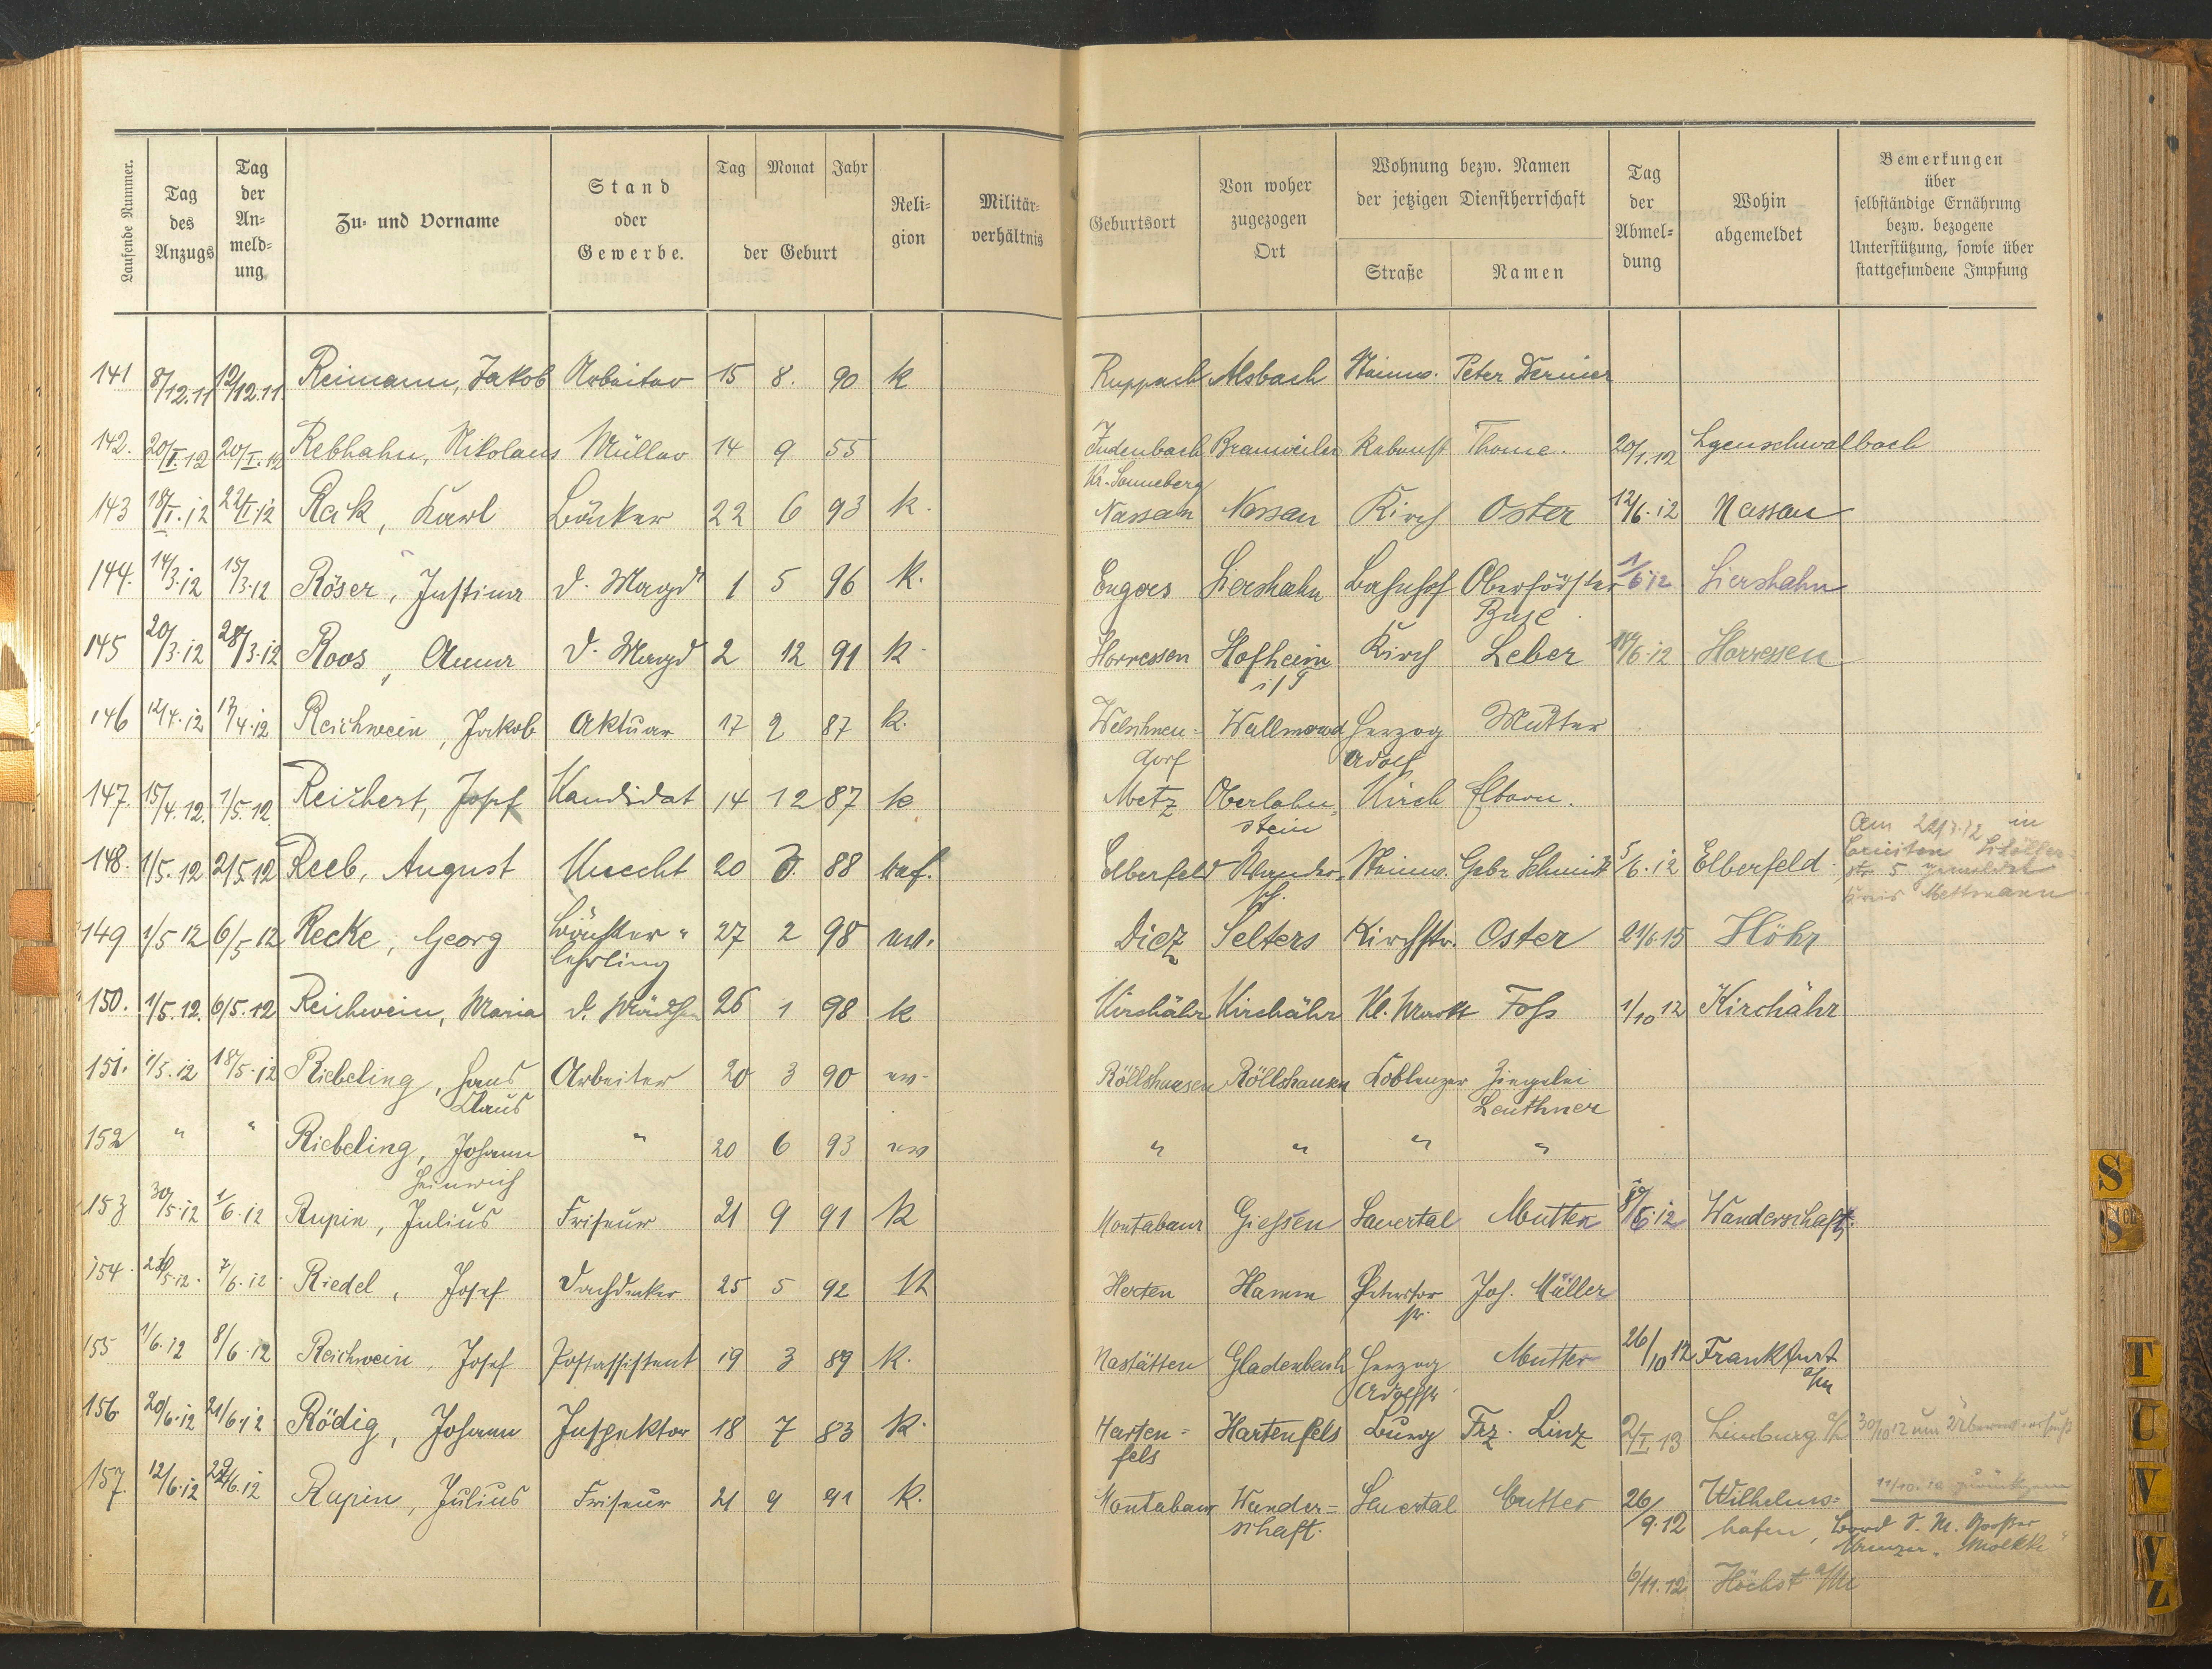 Laufende Nummer.
Tag des Anzugs
Tag der An= meld= ung
Zu= und Vorname
Stand oder Gewerbe.
Tag Monat Jahr
der Geburt
Reli= gion
Militär= verhältnis
Geburtsort
Von woher zugezogen Ort
Wohnung bezw. Namen der jetzigen Dienstherrschaft
Straße Namen
Tag der Abmel= dung
Wohin abgemeldet
Bemerkungen über selbständige Ernährung bezw. bezogene Unterstützung, sowie über stattgefundene Impfung
141 8/12.11 12/12.11. Reimann, Jakob Arbeiter 15 8. 90 k Ruppach Alsbach Steinw. Peter Dernier
142. 20/I.12 20/I.12 Rebhahn, Nikolaus Müller 14 9 55 Judenbach Brauweiler Rebenst Thome. 20/1.12 Lgenschwalbach
Kr. Sonneberg
143 18/I.12 22/I.12 Rack, Karl Bäcker 22 6 93 k. Nassau Nassau Kirch Oster 12/6.12 Nassau
144. 14/3.12 15/3.12 Röser, Justina d. Magd 1 5 96 k. Engers Siershahn Bahnhof Oberförster 1/6 12 Siershahn
Buse
145 20/3.12 28/3.12 Roos, Anna d. Magd 2 12 91 k. Horressen Hofheim Kirch Leber 18/6.12 Horressen
146 12/4.12 17/4.12 Reichwein, Jakob Aktuar 17 2 87 k. Welschneu= Wallmerod Herzog Mutter
dorf Adolf
147. 15/4.12. 1/5.12. Reichert, Josef Kandidat 14 12 87 k Metz Oberlahn= Kirch Eltern.
stein
148. 1/5.12 2/5.12 Reeb, August Knecht 20 3. 88 Elberfeld Wander= Steinw. Gebr Schmidt 5/6.12 Elberfeld.
Am in
5 gemeldet
Kreis Mettmann
149 1/5 12 6/5.12 Recke, Georg 27 2 98 ev. Diez Selters Kirchstr. Oster 21/6.15 Höhr
lehrling
150. 1/5.12. 6/5.12 Reichwein, Maria d. Mädchen 26 1 98 k Kirchähr Kirchähr Kl. Markt Foss 1/10 12 Kirchähr
151. 1/5.12 18/5.12 Riebeling, Hans Arbeiter 20 3 90 ev. Röllshausen Röllshausen Coblenzer Ziegelei
Claus Leuthner
152 " " Riebeling, Johann " 20 6 93 ev " " " "
Heinrich
153 30/5.12 1/6.12 Rupin, Julius Friseur 21 9 91 k Montabaur Giessen Sauertal Mutter Wanderschaft.
154. 7/6.12 Riedel, Josef Dachdecker 25 5 92 k Herten Hamm Peterstor Joh. Müller
str.
155 1/6.12 8/6.12 Reichwein, Josef Postassistent 19 3 89 k. Nastätten Gladenbach Herzog Mutter 26/10 12 Frankfurt
Adolfstr a/M
156 20/6.12 21/6.12 Rödig, Johann Inspektor 18 7 83 k. Harten= Hartenfels Burg Frz. Linz 2/I.13 Limburg a/L 30/10 12 um
fels
157. 12/6.12 22/6.12 Rupin, Julius Friseur 21 9 91 k. Montabaur Wander= Sauertal Mutter 26/9.12 Wilhelms= 11/10.12
schaft. hafen, Bord S. M. Großer
Kreuzer „Moltke"
6/11.12 Höchst a/M
S
Sch
T
U
V
W
Z